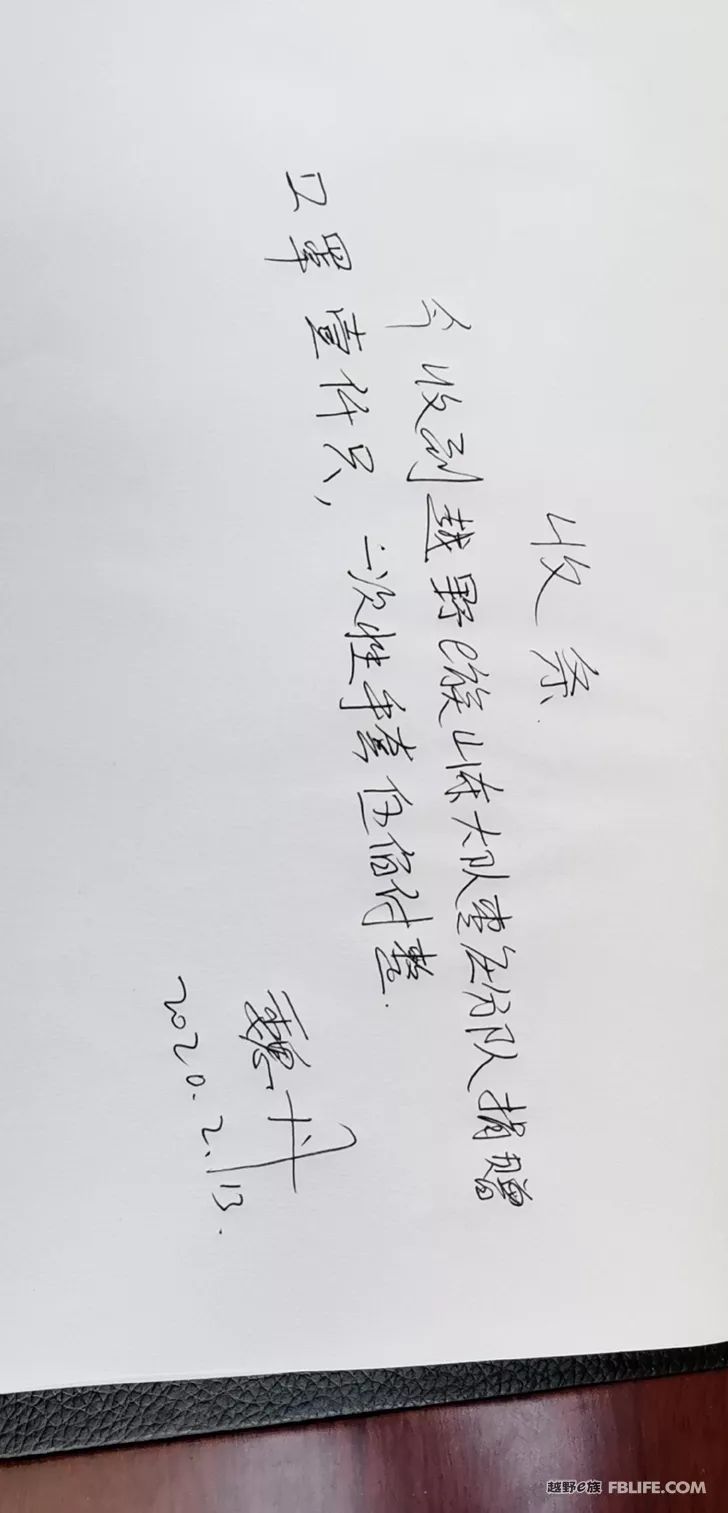 收条
今收到越野e族山东大队枣庄分队捐赠
口罩壹仟只，一次性手套伍佰付整.
魏丹
2020.2.13.
越野e族 FBLIFE.COM